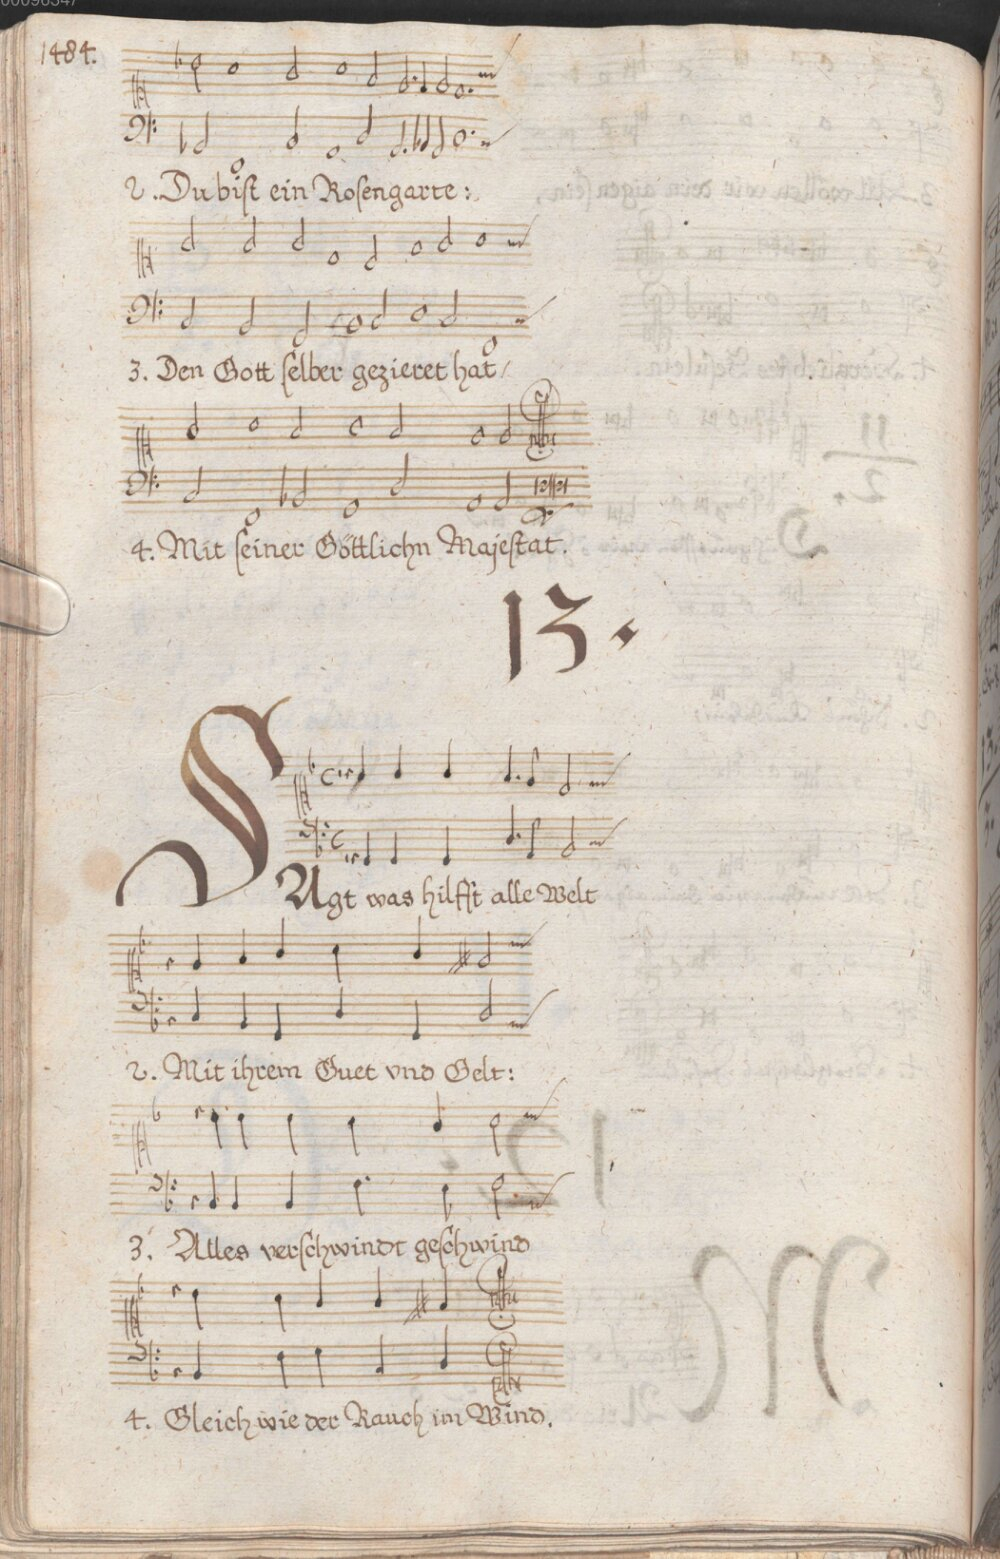 00096347
1484.
2. Du bist ein Rosengarte:
3. Den Gott selber gezieret hat/
4. Mit seiner Göttlichn Majestat.
13.
SAgt was hilfft alle Welt
2. Mit ihrem Guet vnd Gelt:
3. Alles verschwindt geschwind
4. Gleich wie der Rauch im Wind.